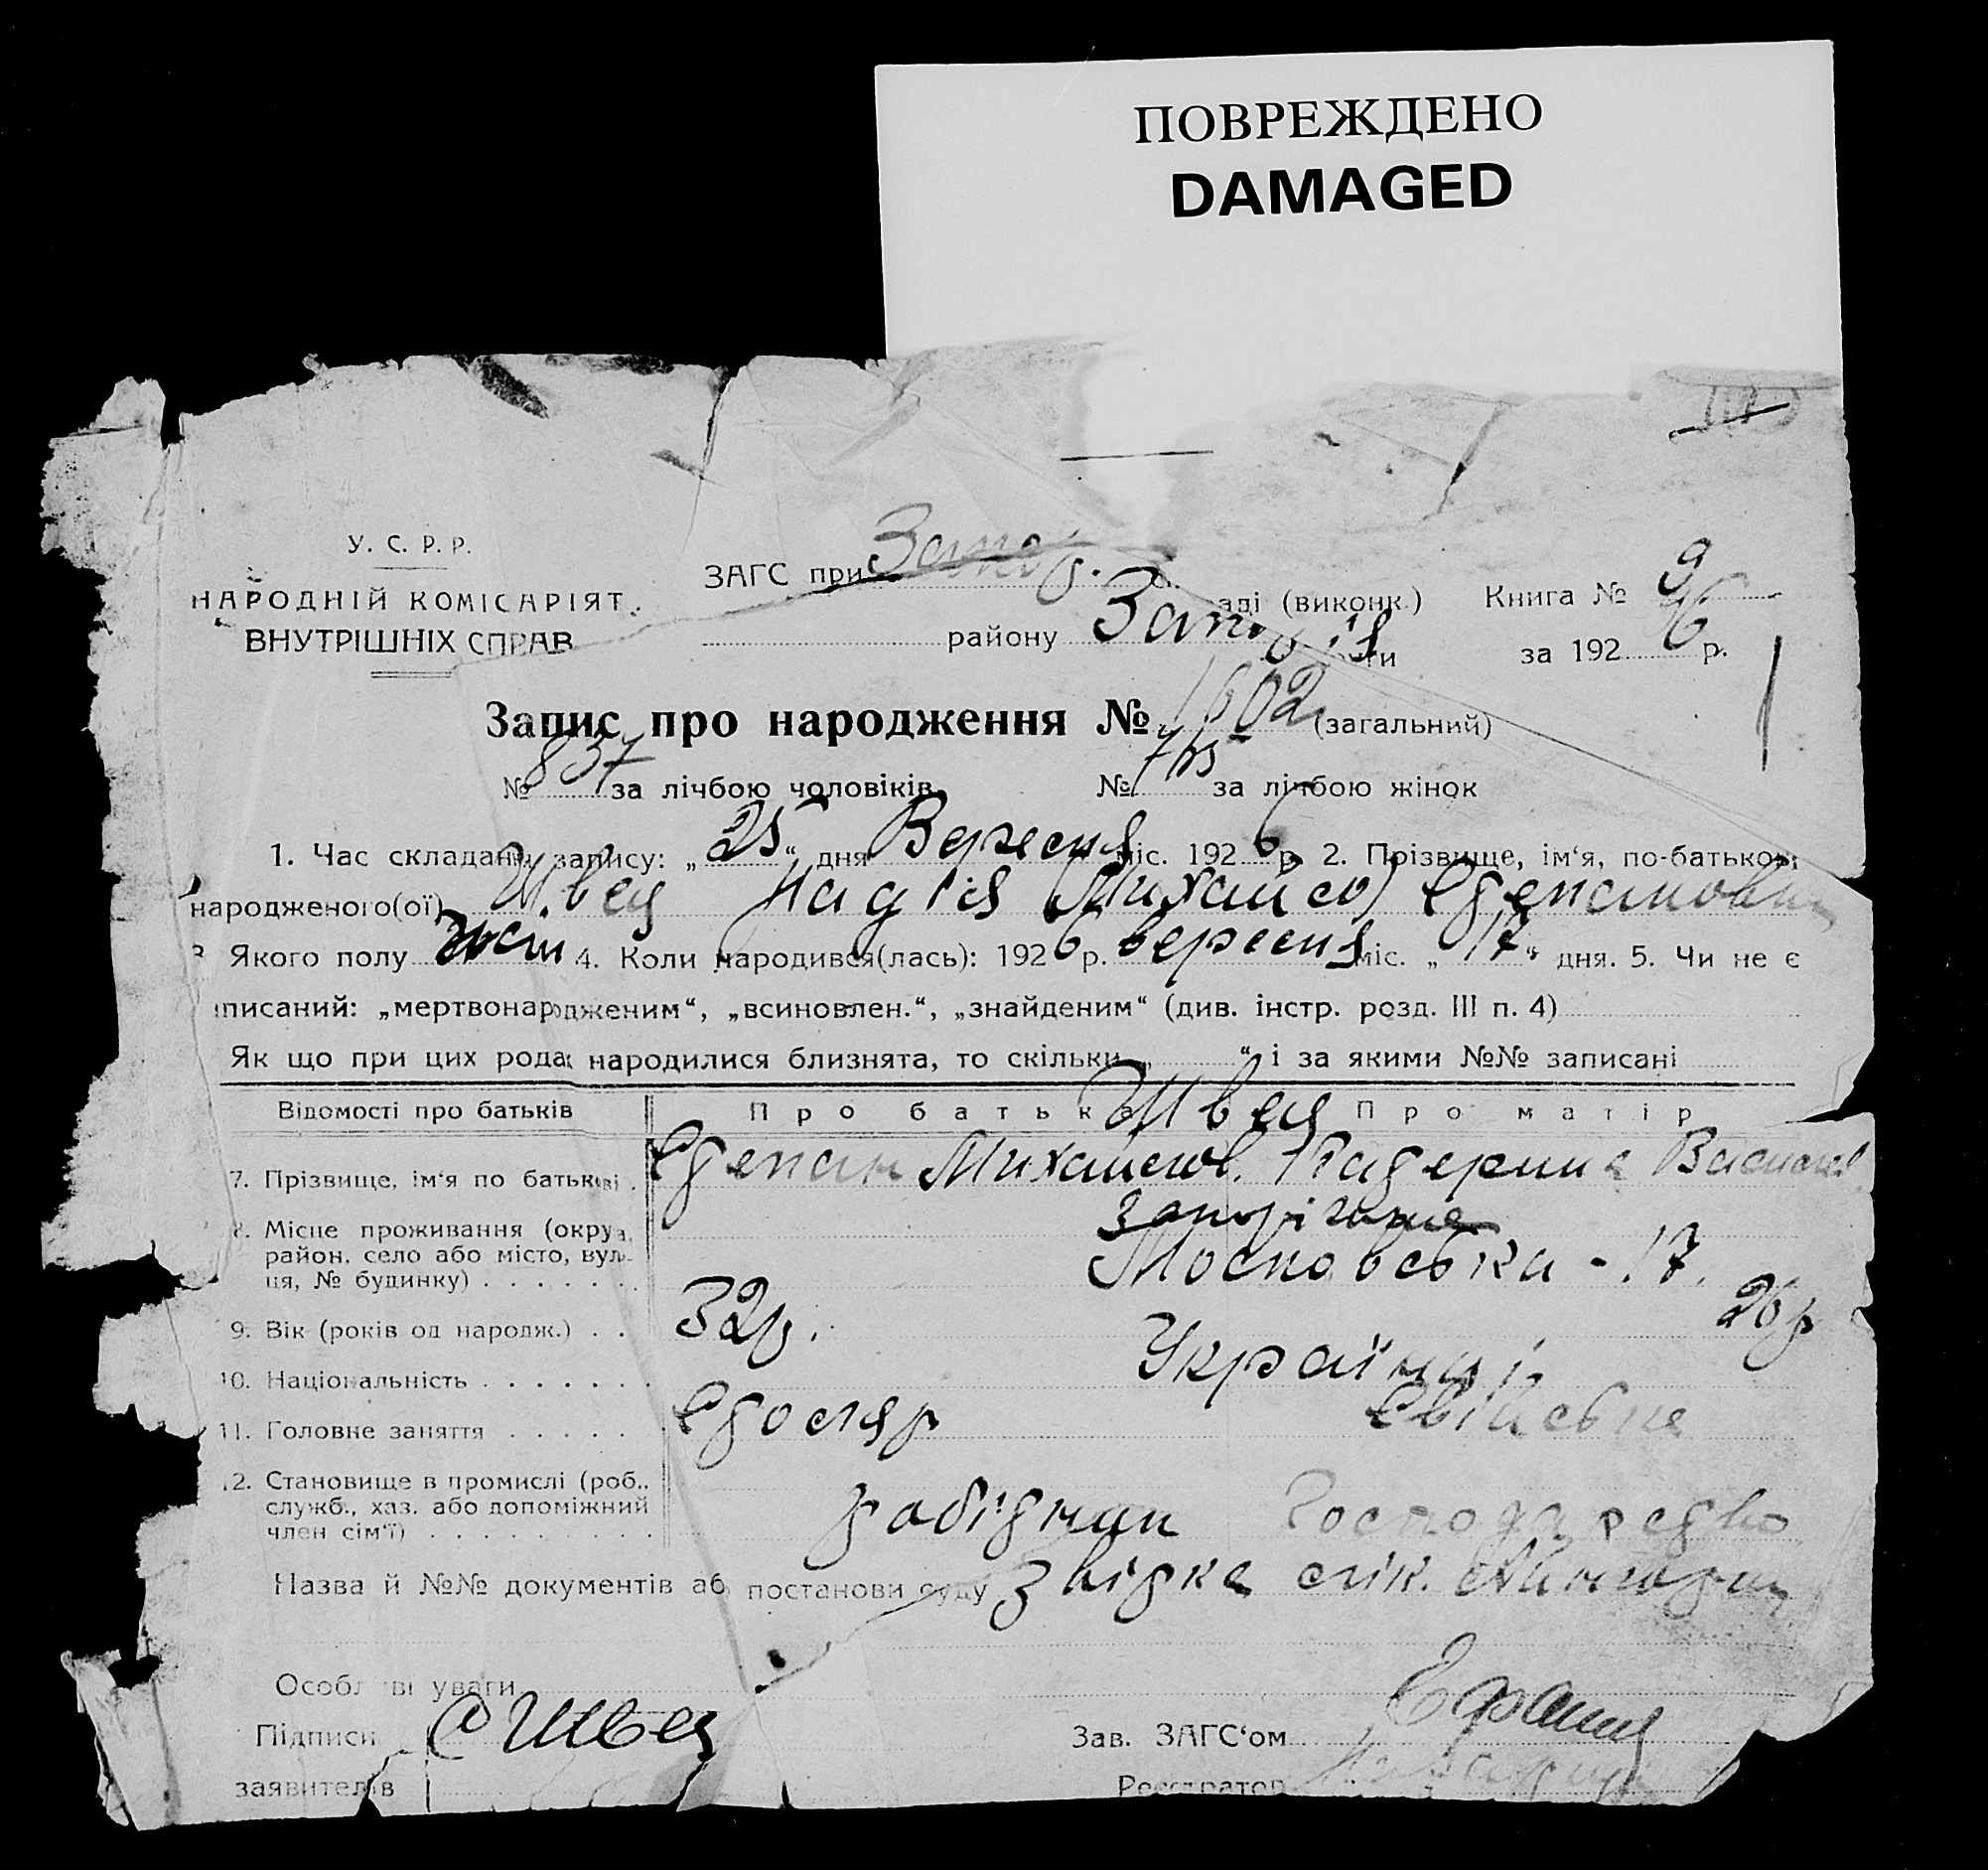 ПОВРЕЖДЕНО
DAMAGED
У. С. Р. Р.
НАРОДНІЙ КОМІСАРІЯТ
ВНУТРІШНІХ СПРАВ
ЗАГС при Запор. аді (виконк.)
району Запор
Книга № 9
за 1926 р.
Запис про народження № 1602 (загальний)
№ 837 за лічбою чоловіків № 765 за лічбою жінок
1. Час складання запису: „25“ дня Вересня міс. 1926 р. 2. Прізвище, ім‘я, по-батькові
народженого(ої) Швец Надія Степановна
3 Якого полу жін 4. Коли народився(лась): 1926 р. вересня міс. „17“ дня. 5. Чи не є
писаний: „мертвонародженим“, „всиновлен.“, „знайденим“ (див. інстр. розд. III п. 4)
Як що при цих родах народилися близнята, то скільки „ “ і за якими №№ записані
Відомості про батьків Про батька Про матір
Швец
7. Прізвище, ім‘я по батькові Степан Михайлов. Катерина Васильев
8. Місце проживання (округа, район, село або місто, вули-ця, № будинку) Запоріжжя
Московська - 17.
9. Вік (років од народж.) 32 р. 26 р
10. Національність Україн
11. Головне заняття Столяр Свійське
12. Становище в промислі (роб., служб., хаз. або допоміжний член сім‘ї) робітник Господарство
Назва й №№ документів аб постанови суду Звідка лік.
Особливі уваги
Підписи С Швец
заявителів
Зав. ЗАГС‘ом
Реєстратор